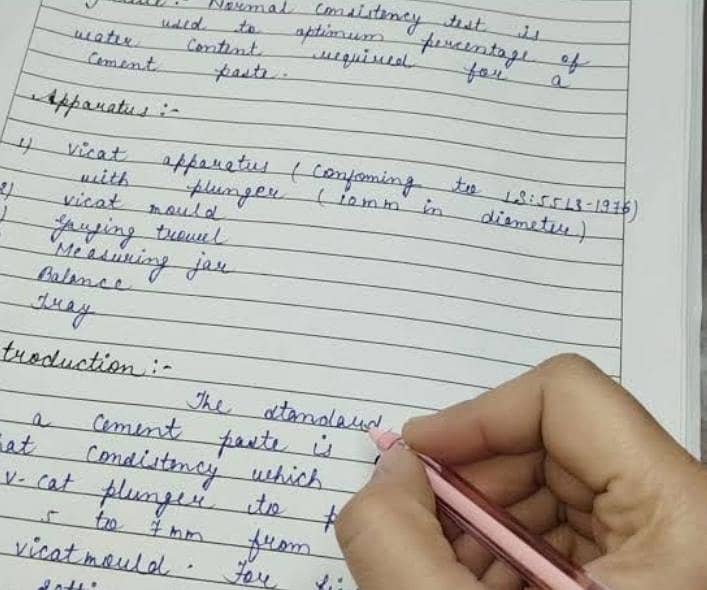 Normal Consistency test is
used to optimum percentage of
water Content required for a
Cement paste.
Apparatus :-
1) Vicat apparatus ( Confoming to I.S:5513-1976)
with plunger ( 10mm in diameter)
2) vicat mould
Gauging trowel
Measuring jar
Balance
Tray
troduction :-
The standard
a Cement paste is
at Condistency which
v-cat plunger to
5 to 7 mm from
vicat mould. For